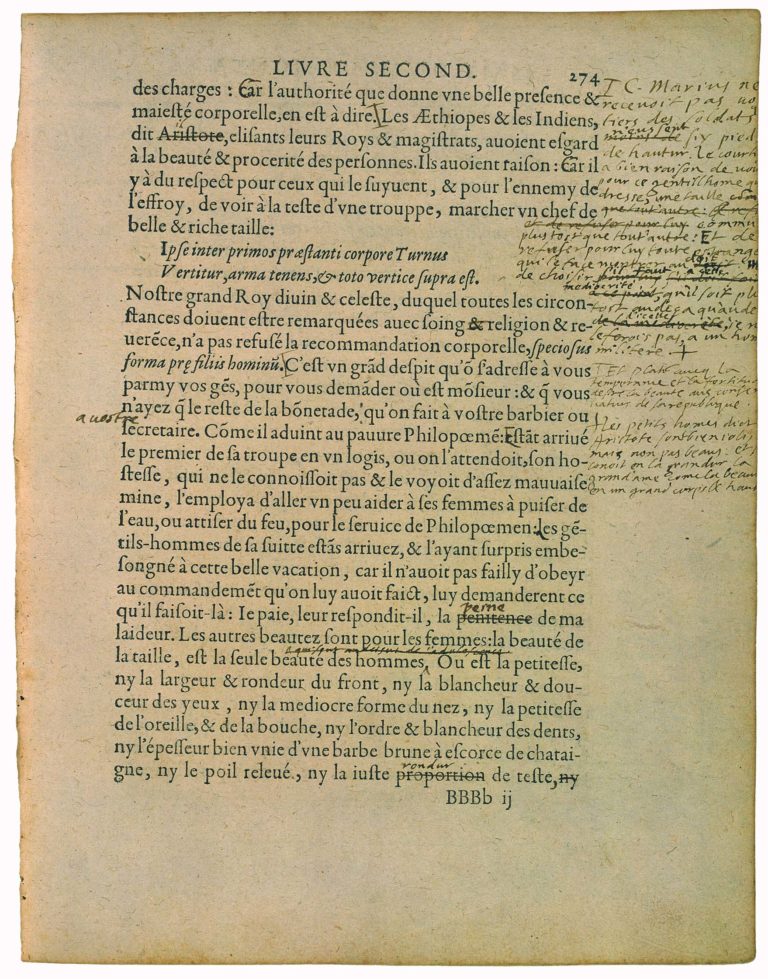 LIVRE SECOND. 274
des charges : Car l'authorité que donne vne belle presence &
maiesté corporelle, en est à dire. Les Æthiopes & les Indiens,
dit Aristote, elisants leurs Roys & magistrats, auoient esgard
à la beauté & procerité des personnes. Ils auoient raison : Car il
y à du respect pour ceux qui le suyuent, & pour l'ennemy de
l'effroy, de voir à la teste d'vne trouppe, marcher vn chef de
belle & riche taille:
Ipse inter primos præstanti corpore Turnus
Vertitur, arma tenens, & toto vertice supra est.
Nostre grand Roy diuin & celeste, duquel toutes les circon-
stances doiuent estre remarquées auec soing & religion & re-
uerẽce, n'a pas refusé la recommandation corporelle, speciosus
forma pręfiliis hominũ. C'est vn grãd despit qu'õ s'adresse à vous
parmy vos gẽs, pour vous demãder où est mõsieur : & q̃ vous
n'ayez q̃ le reste de la bõnetade, qu'on fait à vostre barbier ou
a vostre
secretaire. Cõme il aduint au pauure Philopœmẽ: Estãt arriué
le premier de sa troupe en vn logis, ou on l'attendoit, son ho-
stesse, qui ne le connoissoit pas & le voyoit d'assez mauuaise
mine, l'employa d'aller vn peu aider à ses femmes à puiser de
l'eau, ou attiser du feu, pour le seruice de Philopœmen: les gẽ-
tils-hommes de sa suitte estãs arriuez, & l'ayant surpris embe-
songné à cette belle vacation, car il n'auoit pas failly d'obeyr
au commandemẽt qu'on luy auoit faict, luy demanderent ce
qu'il faisoit-là : Ie paie, leur respondit-il, la penitence de ma
peine
laideur. Les autres beautez sont pour les femmes: la beauté de
la taille, est la seule beauté des hommes. Ou est la petitesse,
ny la largeur & rondeur du front, ny la blancheur & dou-
ceur des yeux, ny la mediocre forme du nez, ny la petitesse
de l'oreille, & de la bouche, ny l'ordre & blancheur des dents,
ny l'épesseur bien vnie d'vne barbe brune à escorce de chatai-
gne, ny le poil releué, ny la iuste proportion de teste, ny
rondur
BBBb ij
I C. Marius ne
recevoit pas vo
tiers des soldats
six pied
de hautur. le court
a bien raison de vo
pour ce gentilhome
dresse, une taille com
et de refuser pour luy commu
plustost que tout'autre: Et de
refuser pour luy toute estrange
de choisir
mediocrité
qu'il soit pl
un hom
militere
I Et plato aueq la
temperance et la fortitu
desire la beauté aus conser
natur de sa republique
I les petits homes dict
Aristote sont bien iolis
mais non pas beaus: et
conoit on la grandur la
grand'ame come la beau
en un grand corps & haut